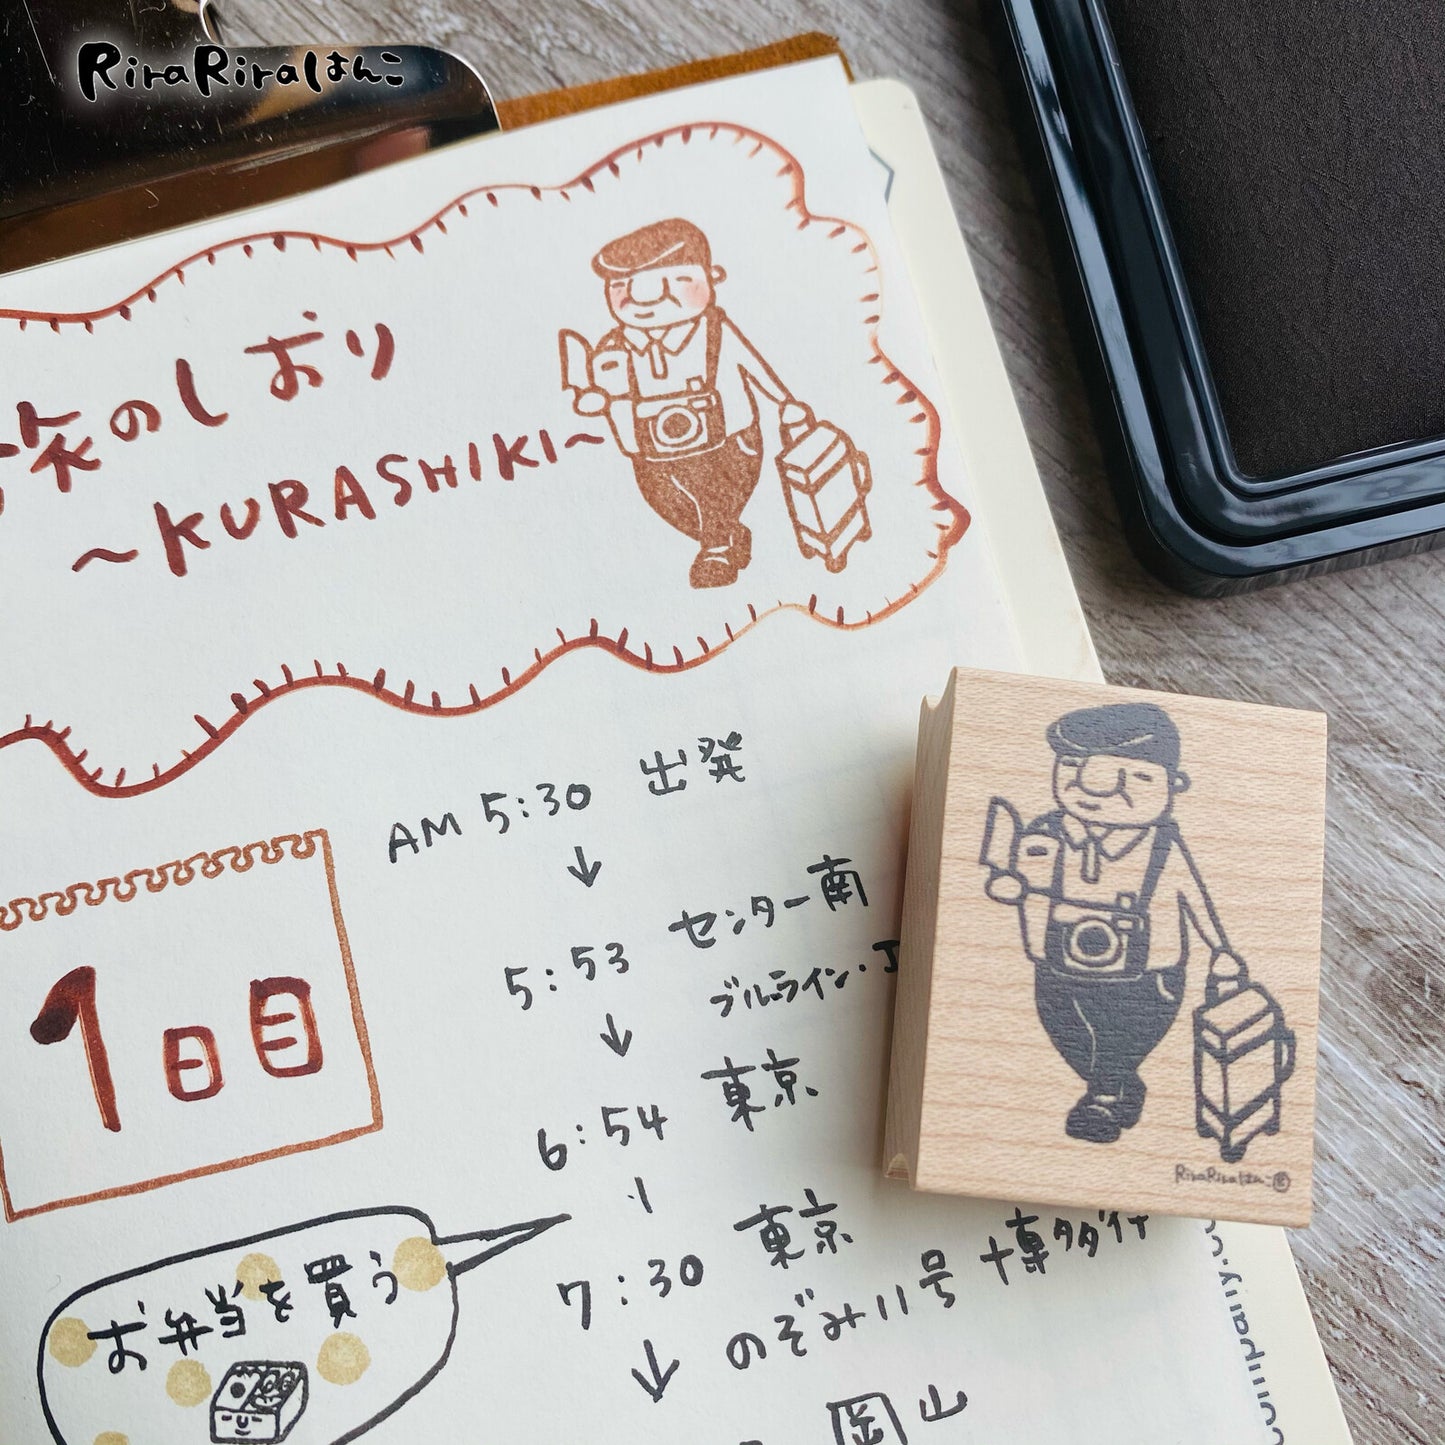 RiraRiraはんこ
旅のしおり
~KURASHIKI~
AM 5:30 出発
↓
5:53 センター南
ブルーライン・J
↓
6:54 東京
7:30 東京
のぞみ11号 博多行
↓
岡山
1日目
お弁当を買う
RiraRiraはんこ
company.co